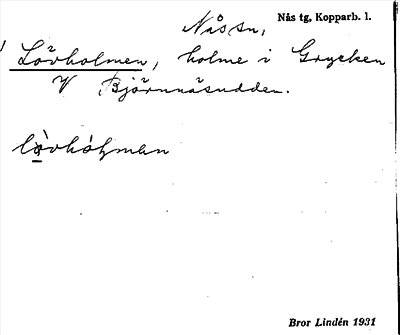 Nås sn, Nås tg, Kopparb. l.
Lövholmen, holme i Grycken
V Björnnäsudden.
lòvhó̀lman
Bror Lindén 1931